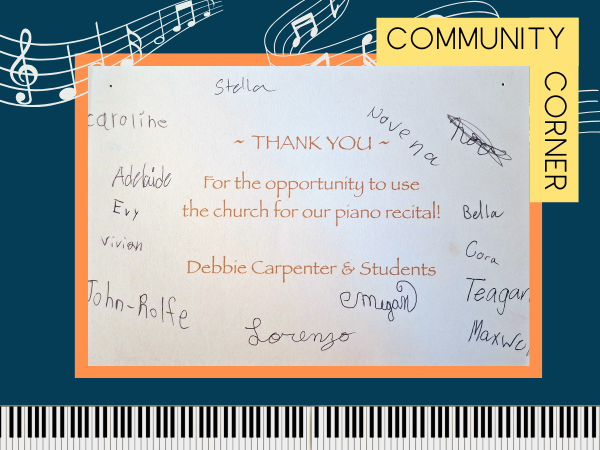 COMMUNITY
CORNER
Stella
caroline
Novena
~ THANK YOU ~
Adelaide
For the opportunity to use
Evy
the church for our piano recital!
Bella
vivian
Cora
Debbie Carpenter & Students
John-Rolfe
emegan
Teagan
Lorenzo